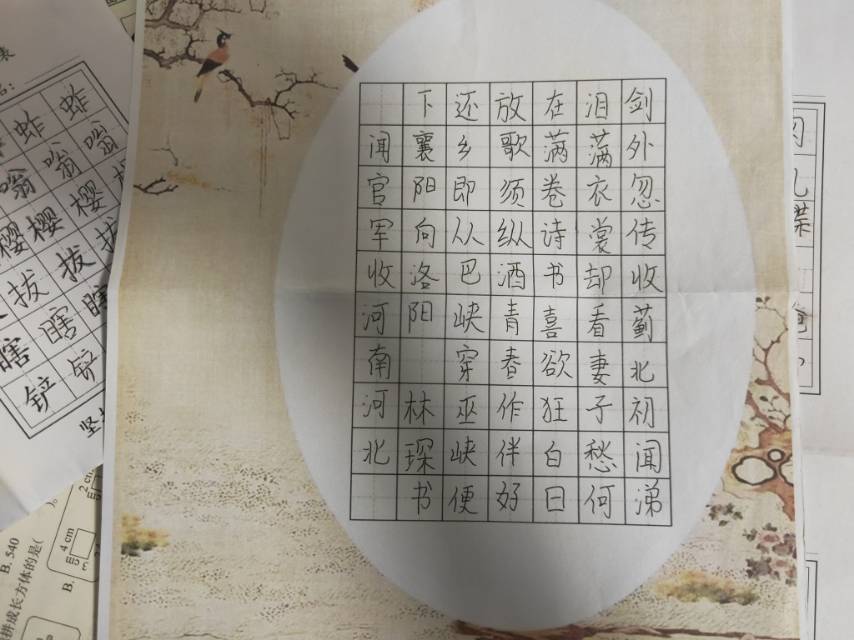 剑外忽传收蓟北初闻涕
泪满衣裳却看妻子愁何
在满卷诗书喜欲狂白日
放歌须纵酒青春作伴好
还乡即从巴峡穿巫峡便
下襄阳向洛阳 林琛书
闻官军收河南河北
蚱 蚱
嗡 嗡 嗡
樱 樱 樱
拔 拔 拔
瞎 瞎 瞎
铲 铲
坚
2 cm
4 cm
B.
B. 540
拼成长方体的是(